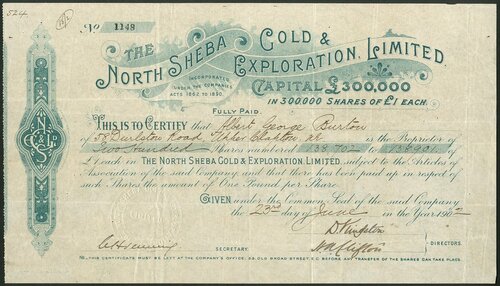 524
No 1148
THE
NORTH SHEBA GOLD & EXPLORATION, LIMITED
INCORPORATED
UNDER THE COMPANIES
ACTS 1862 TO 1890.
CAPITAL £300,000
IN 300000 SHARES OF £1 EACH.
FULLY PAID.
THIS IS TO CERTIFY that Albert George Burton
Road, Upper Clapton, is the Proprietor of
Two Hundred Shares numbered 138702 to 138901
£1 each in THE NORTH SHEBA GOLD & EXPLORATION, LIMITED, subject to the Articles of
Association of the said Company, and that there has been paid up in respect of
such Shares the amount of One Pound per Share.
GIVEN under the Common Seal of the said Company
the 23rd day of June in the Year 190
DIRECTORS.
SECRETARY.
NB. THIS CERTIFICATE MUST BE LEFT AT THE COMPANY'S OFFICE, 58, OLD BROAD STREET, E.C. BEFORE ANY TRANSFER OF THE SHARES CAN TAKE PLACE.